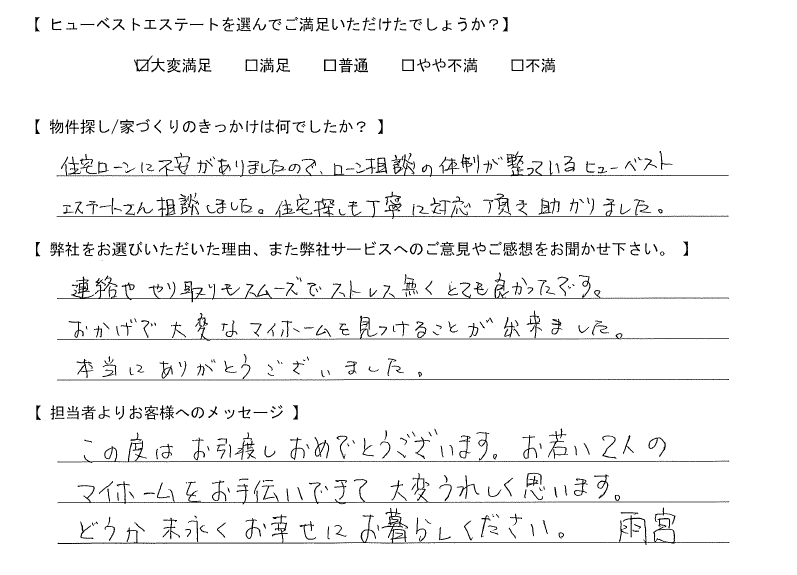 【 ヒューベストエステートを選んでご満足いただけたでしょうか？】
☑大変満足 □満足 □普通 □やや不満 □不満
【 物件探し/家づくりのきっかけは何でしたか？ 】
住宅ローンに不安がありましたので、ローン相談の体制が整っているヒューベスト
エステートさん相談しました。住宅探しも丁寧に対応頂き助かりました。
【 弊社をお選びいただいた理由、また弊社サービスへのご意見やご感想をお聞かせ下さい。 】
連絡ややり取りもスムーズでストレス無くとても良かったです。
おかげで大変なマイホームを見つけることが出来ました。
本当にありがとうございました。
【 担当者よりお客様へのメッセージ 】
この度はお引渡しおめでとうございます。お若い2人の
マイホームをお手伝いできて大変うれしく思います。
どうか末永くお幸せにお暮らしください。 雨宮